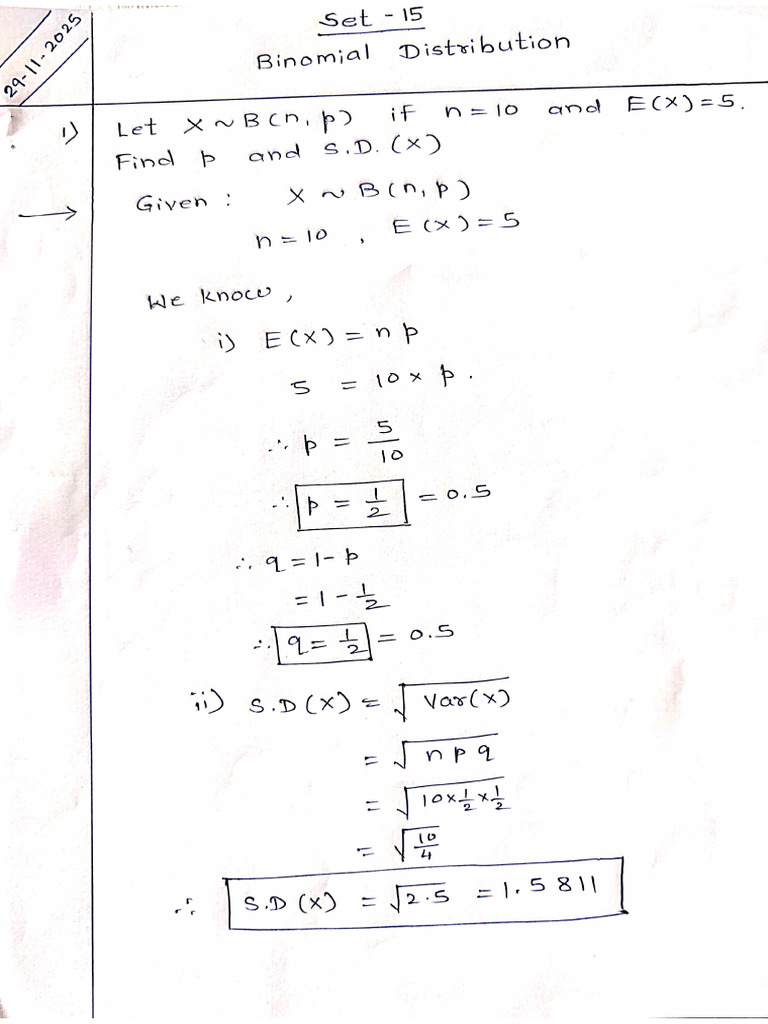 29-11-2025
Set - 15
Binomial Distribution
1) Let X ~ B(n, p) if n = 10 and E(X) = 5.
Find p and S.D. (X)
→ Given : X ~ B(n, p)
n = 10 , E(X) = 5
We know,
i) E(X) = n p
5 = 10 × p.
∴ p = 5/10
∴ p = 1/2 = 0.5
∴ q = 1 - p
= 1 - 1/2
∴ q = 1/2 = 0.5
ii) S.D(X) = √Var(X)
= √n p q
= √10×1/2×1/2
= √10/4
∴ S.D(X) = √2.5 = 1.5811